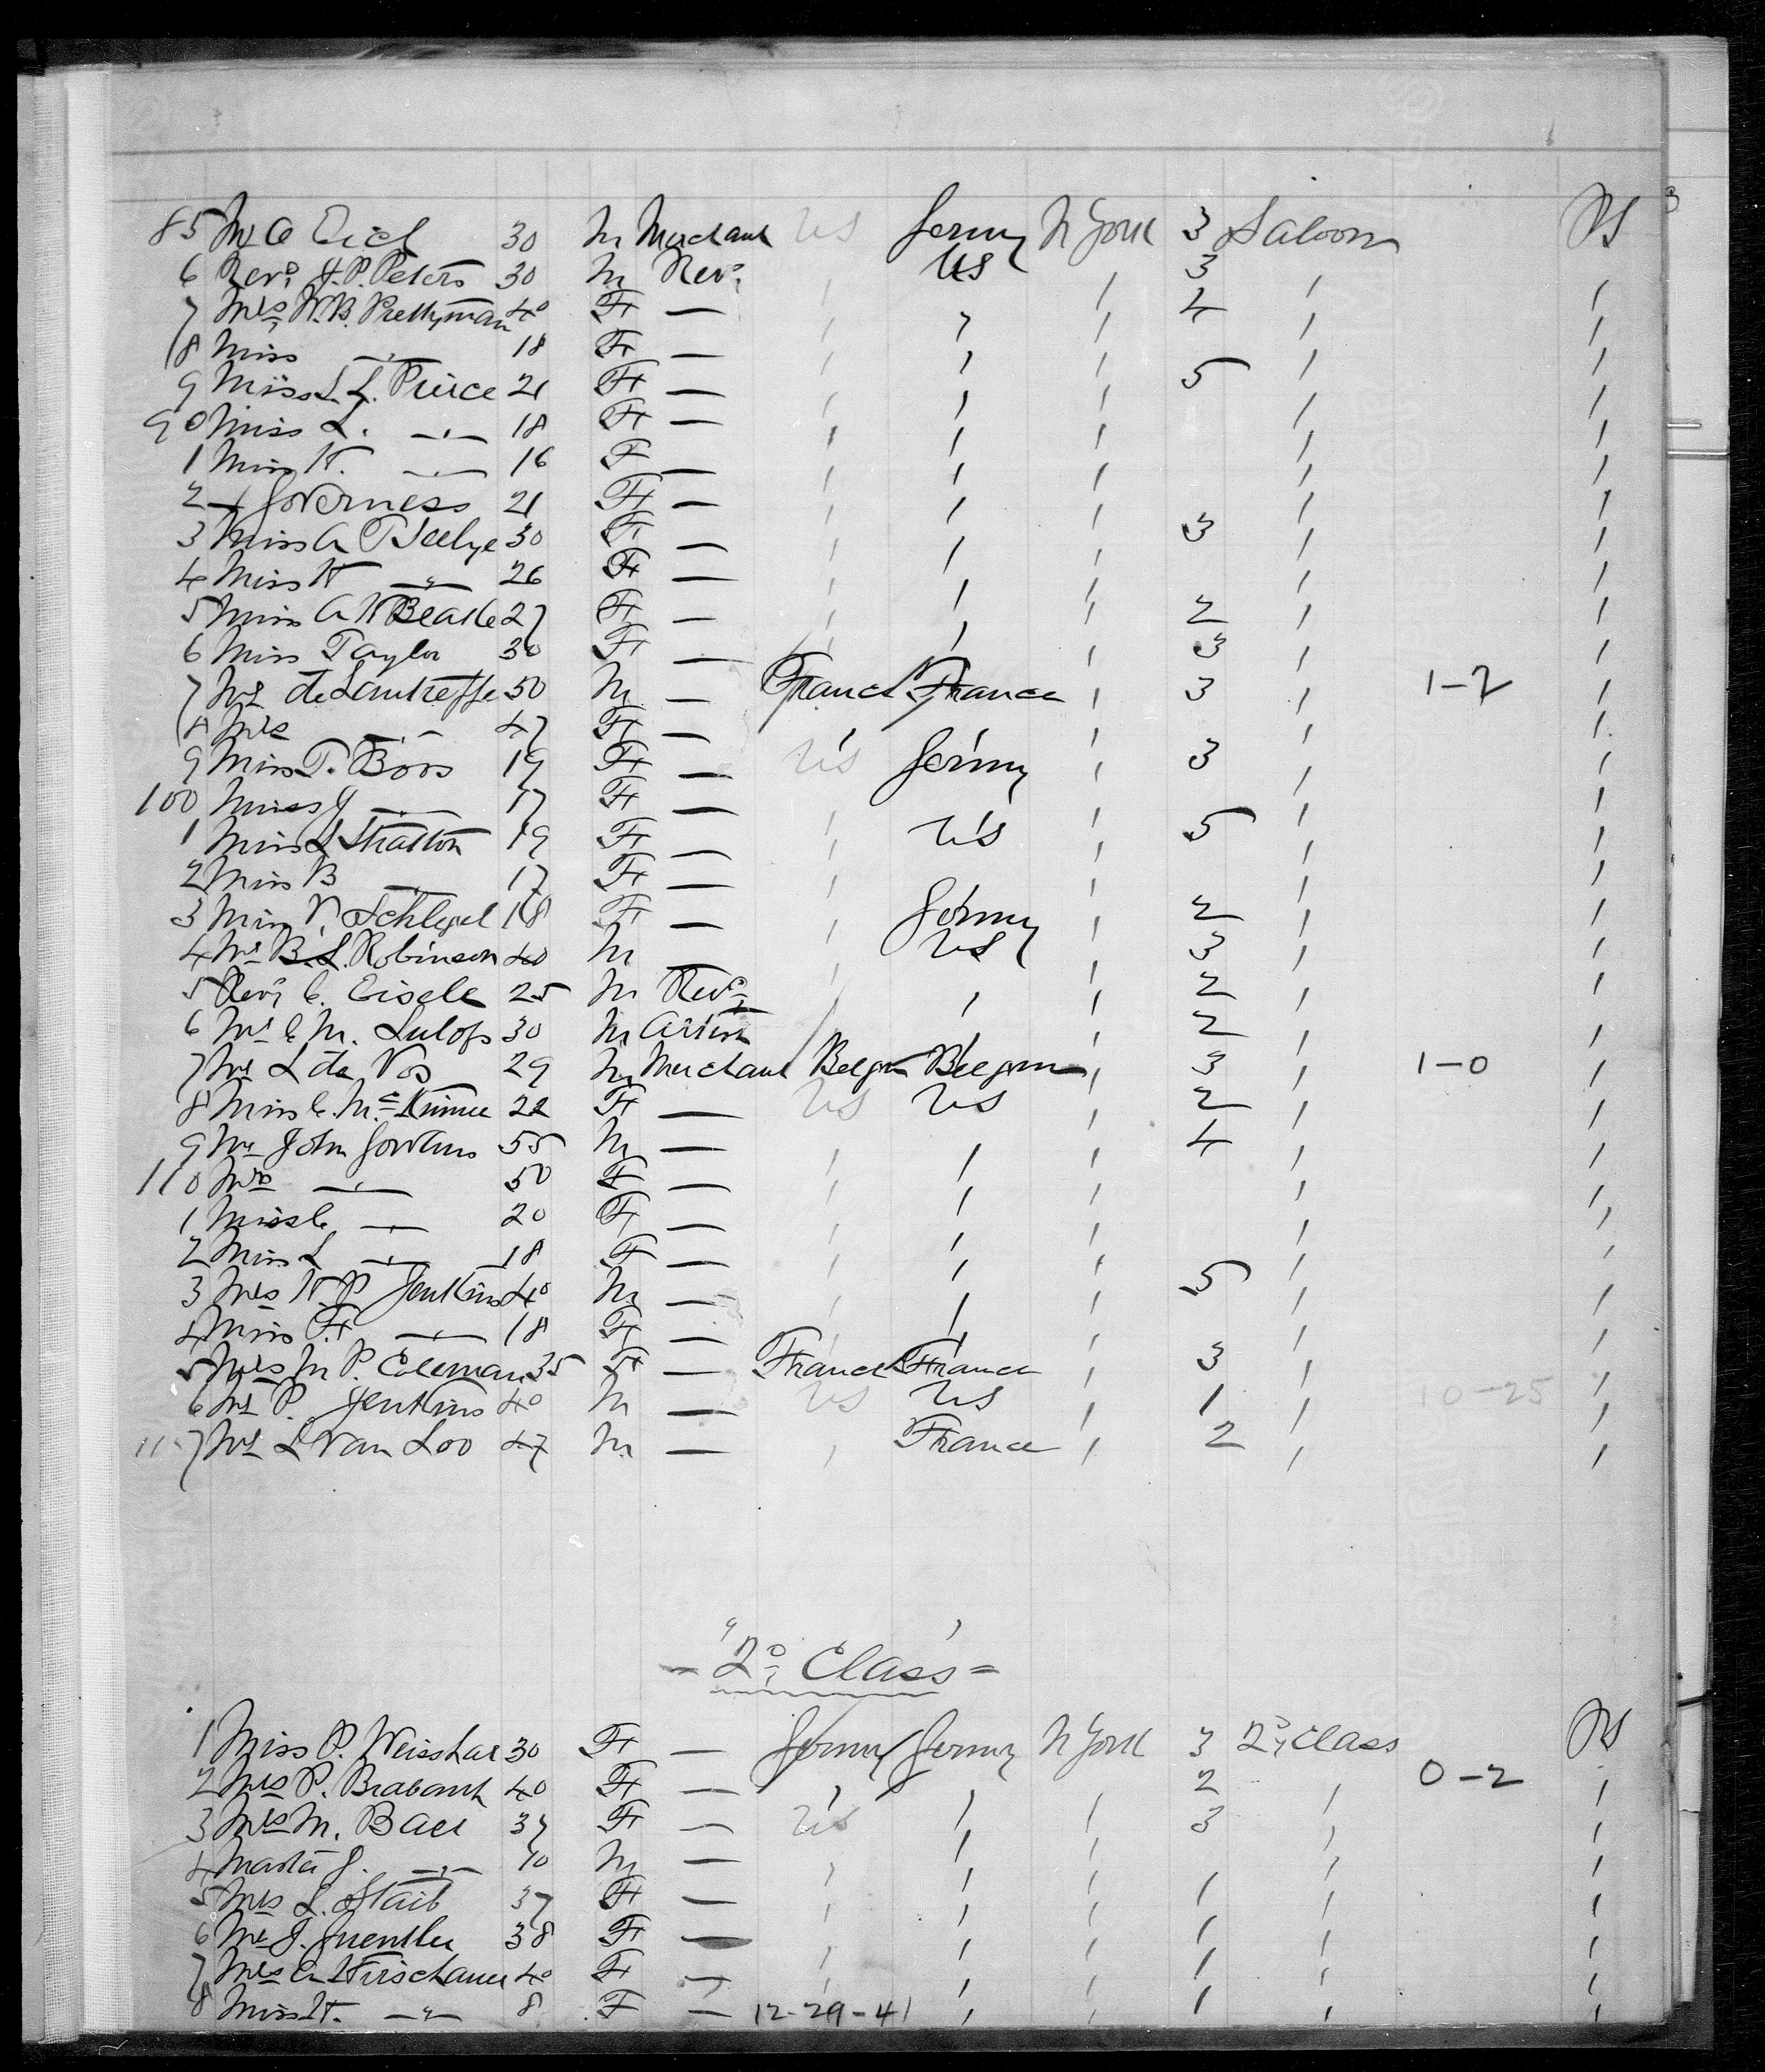 85 Mr O Eich 30 M Merchant US Germy N York 3 Saloon PS
6 Revd H. P. Peters 30 M Revd / US 3
7 Mrs W. B. Prettyman 40 F — 4
8 Miss —"— 18 F —
9 Miss L. L. Pierce 21 F — 5
90 Miss L. —"— 18 F —
1 Miss H. —"— 16 F —
2 — Governess 21 F —
3 Miss A T Seelye 30 F — 3
4 Miss H —"— 26 F —
5 Miss A H 27 F — 2
6 Miss Taylor 30 F — 3
7 Mr 50 M — France France 3 1-2
8 Mrs —"— 47 F —
9 Miss T. Boos 19 F — US Germy 3
100 Miss J —"— 17 F —
1 Miss L Stratton 19 F — US 5
2 Miss B —"— 17 F —
3 Miss V. Schlegel 18 F — Germy 2
4 Mr B. L. Robinson 40 M — US 3
5 Revd C. Eisele 25 M Revd 2
6 Mr C M. Lulofs 30 M 2
7 Mr L de Vos 29 M Merchant Belgm Belgm 3 1-0
8 Miss C. 22 F — US US 2
9 Mr John 55 M — 4
110 Mrs —"— 50 F —
1 Miss C —"— 20 F —
2 Miss L —"— 18 F —
3 Mrs H. P Jenkins 40 M — 5
4 Miss F. —"— 18 F —
5 Mrs M P. Coleman 35 F — France France 3
6 Mr P. Jenkins 40 M — US US 1 10-25
117 Mr L Van Loo 47 M — France 2
"2d Class"
1 Miss P. Weisshar 30 F — Germy Germy N York 3 2d Class PS
2 Mrs P. Brabant 40 F — 2 0-2
3 Mrs M. Baer 37 F — US 3
4 Master J. —"— 10 M —
5 Mrs L. Staib 37 F — 1
6 Mr J. Guenther 38 F — 1
7 Mrs A Hirschauer 40 F — 1
8 Miss H. —"— 8 F — 12-29-41 1